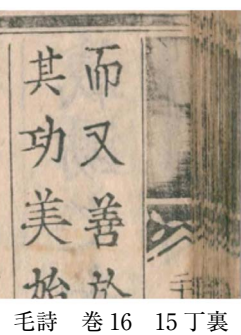 而又善於
其功美始
毛詩　巻16　15丁裏